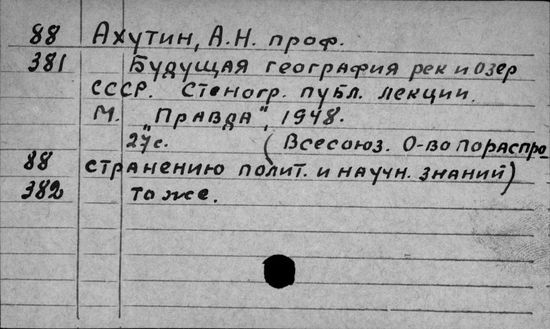 88 Ахутин, А.Н. проф.
381 Будущая география рек и озер
СССР. Стеногр. публ. лекции.
М. „Правда", 1948.
27с. (Всесоюз. О-во по распро-
88 странению полит. и научн. знаний)
382 то же.